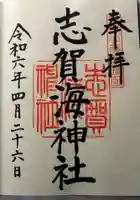 奉拝
志賀海神社
令和六年四月二十六日